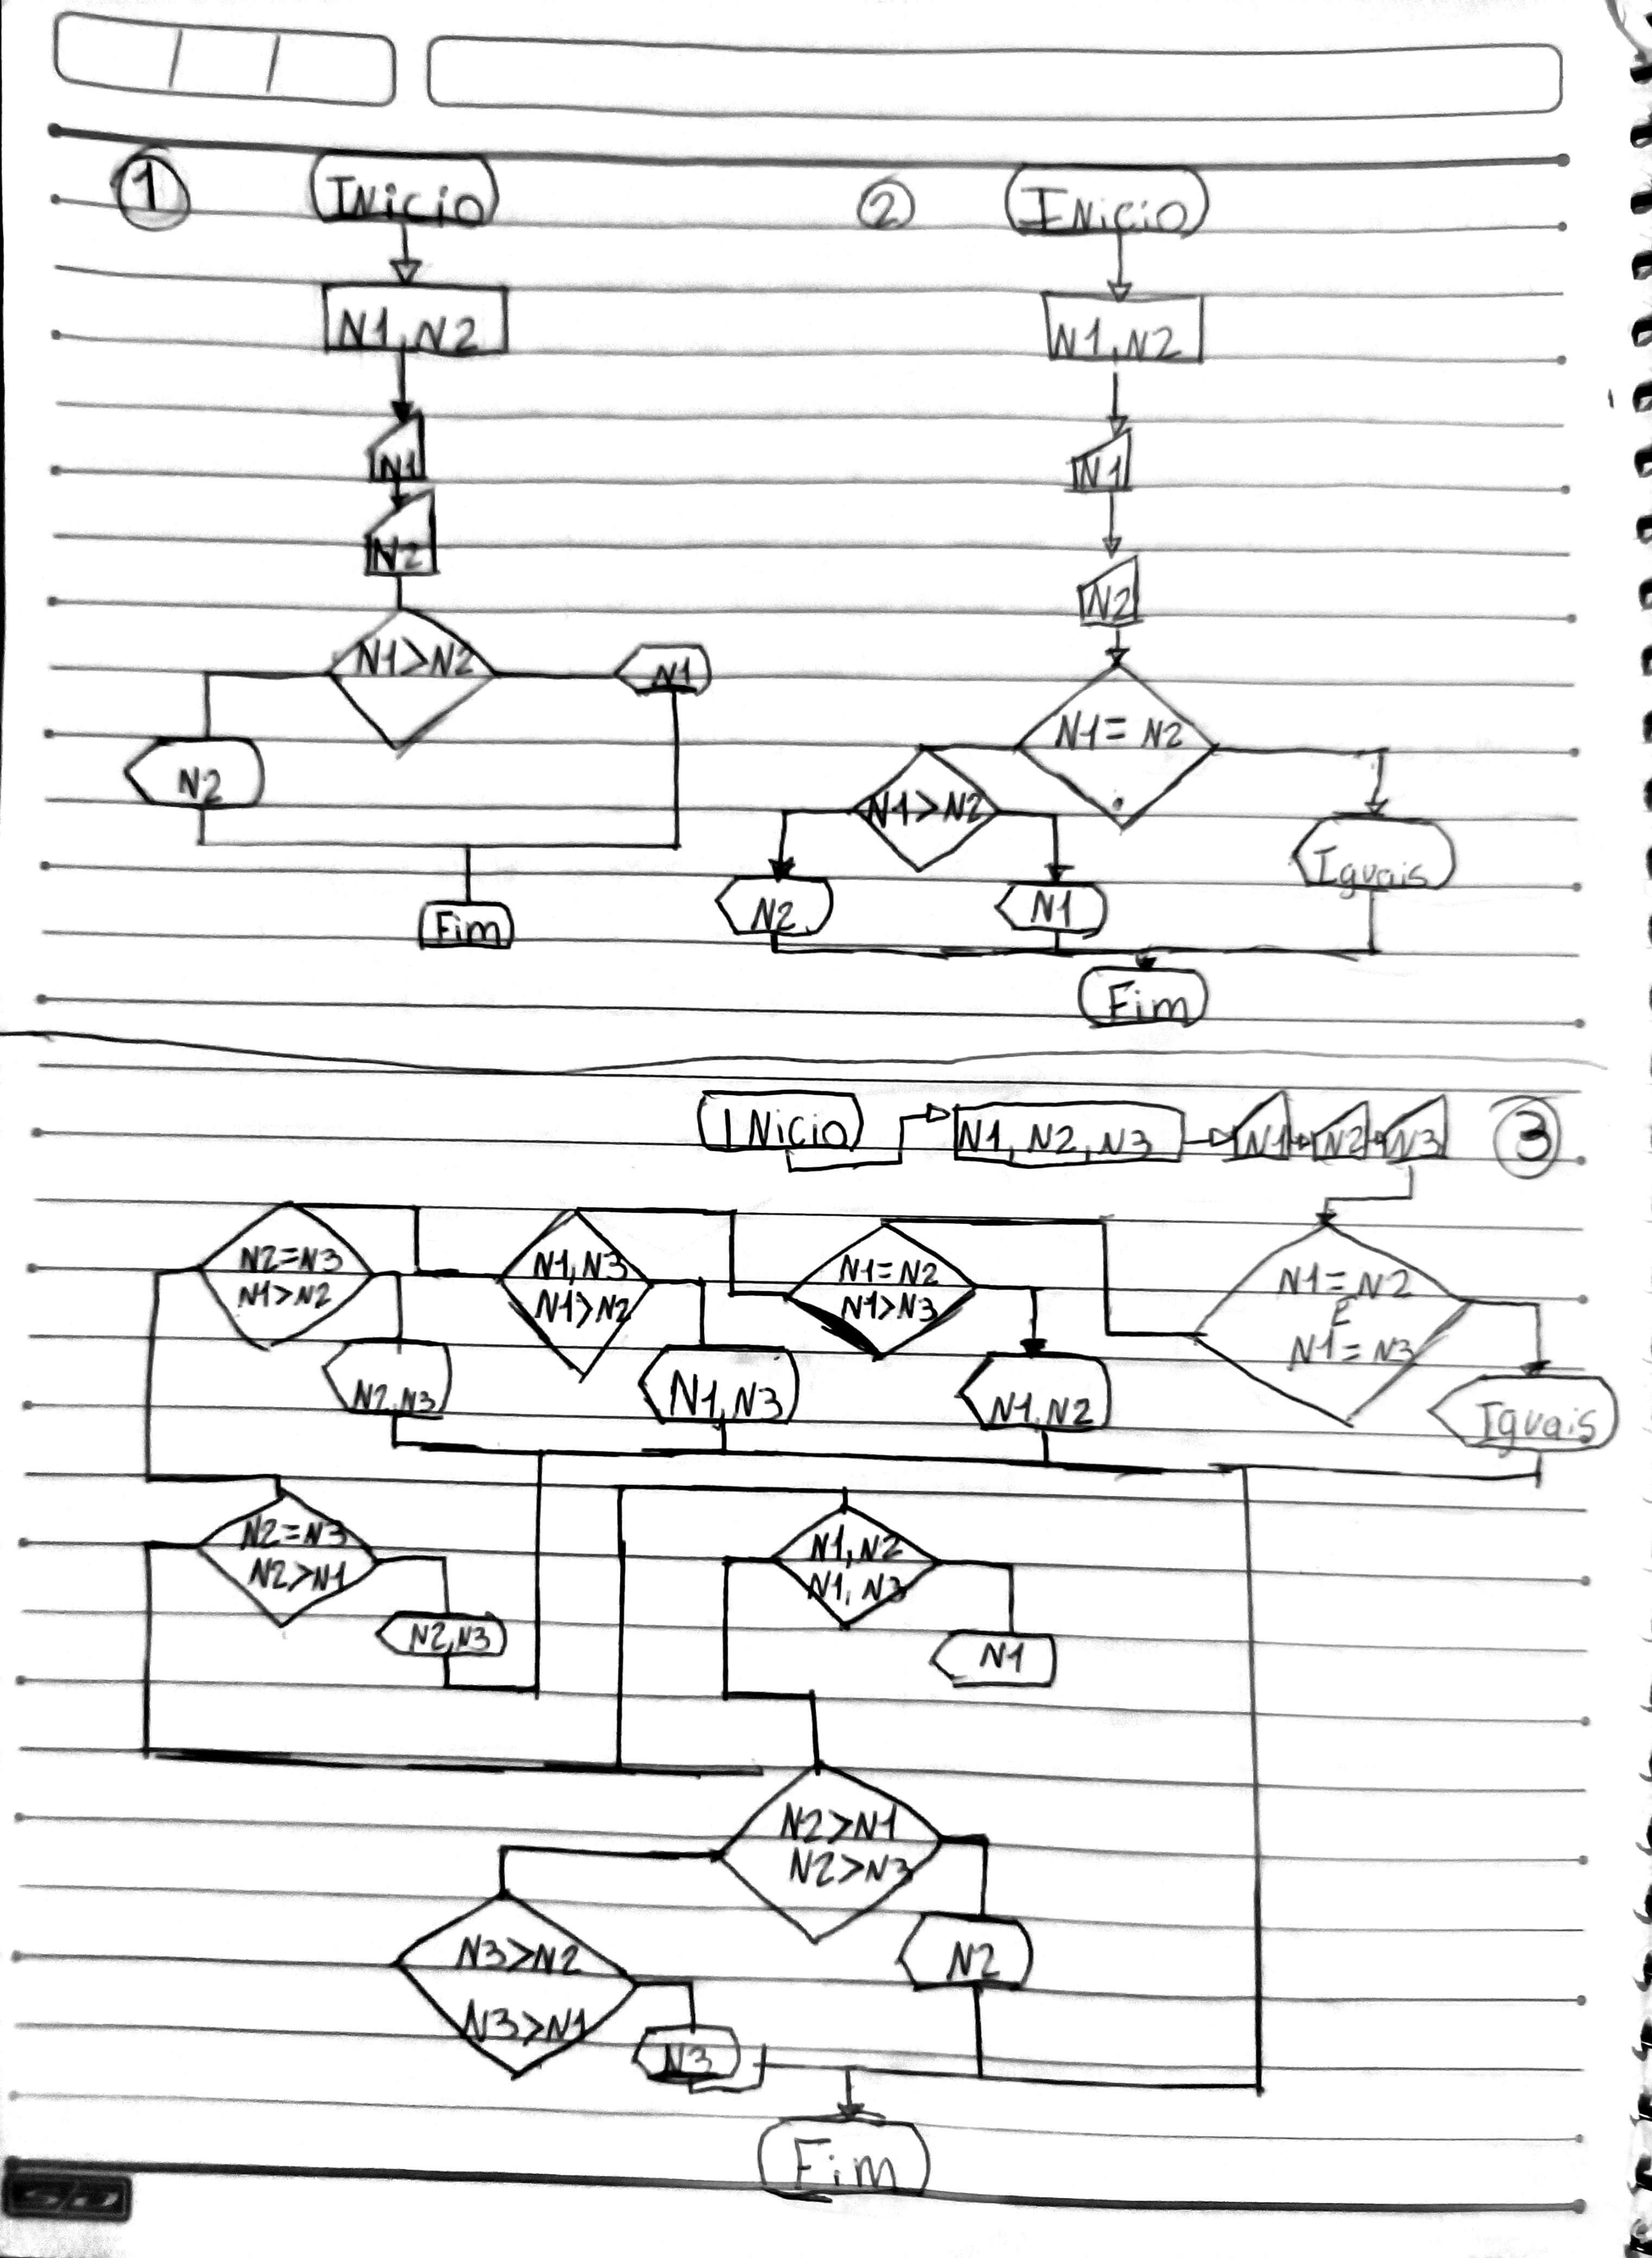 1
INicio
N1, N2
N1
N2
N1>N2
N1
N2
Fim
2
INicio
N1, N2
N1
N2
N1= N2
N1>N2
N2
N1
Iguais
Fim
INicio
N1, N2, N3
N1
N2
N3
3
N2=N3
N1>N2
N1, N3
N1>N2
N1=N2
N1>N3
N1=N2
E
N1=N3
N2,N3
N1,N3
N1,N2
Iguais
N2=N3
N2>N1
N1,N2
N1, N3
N2,N3
N1
N2>N1
N2>N3
N3>N2
N3>N1
N2
N3
Fim